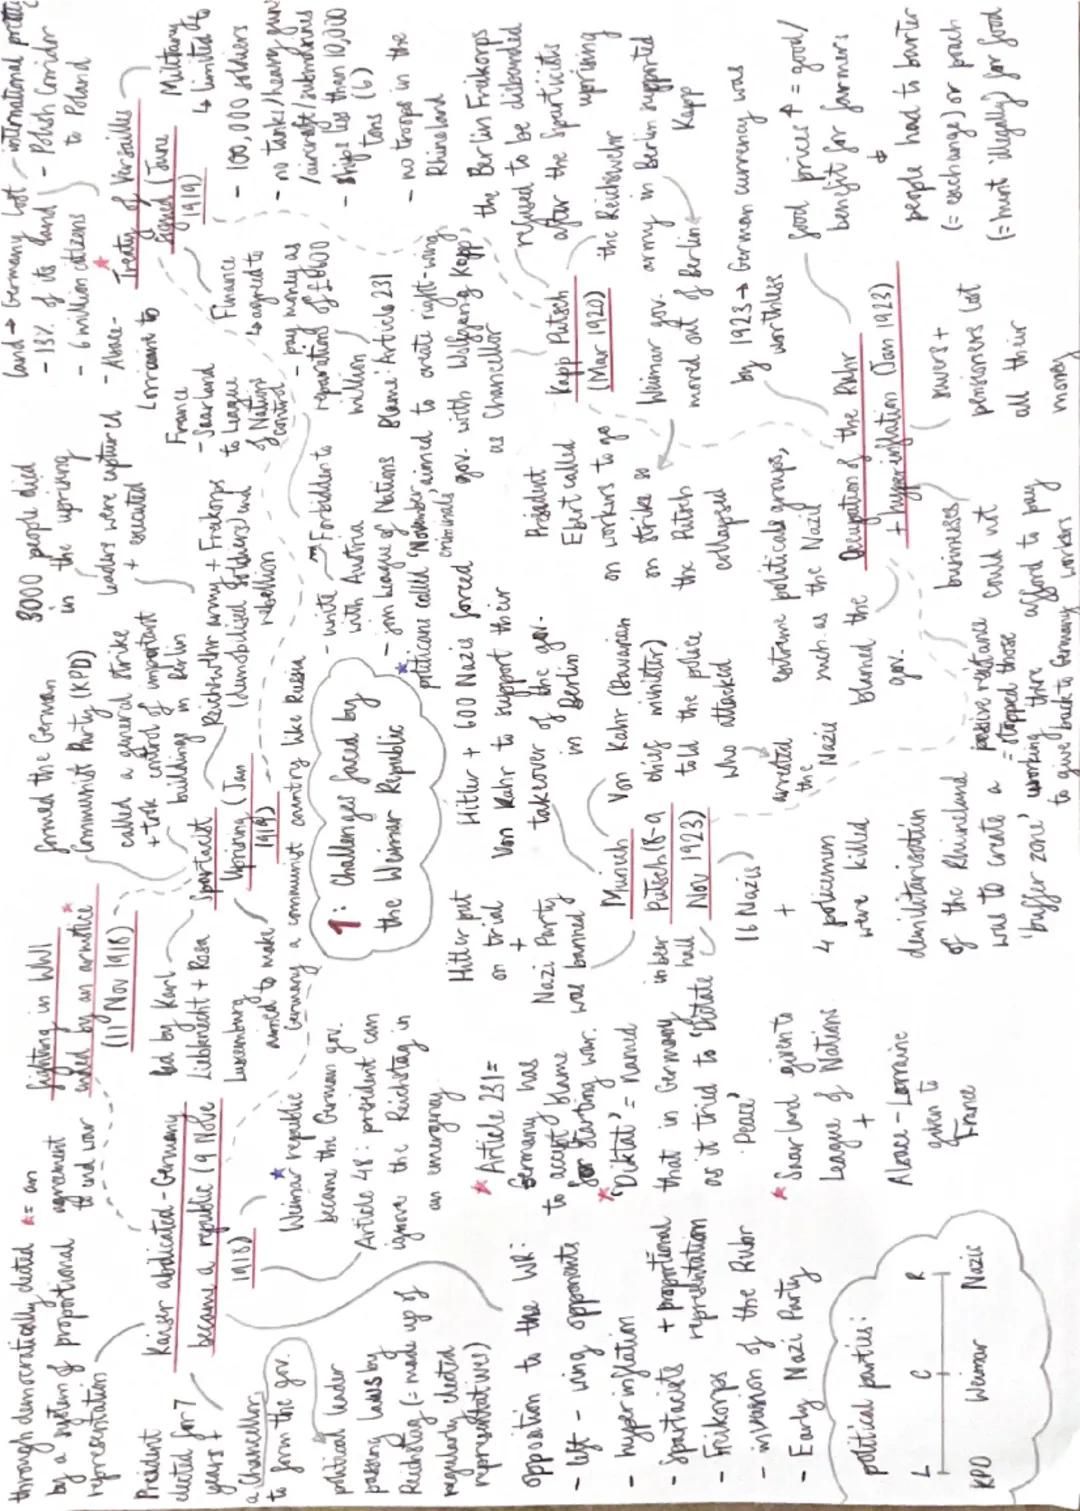 through democratically elected
by a system of proportional
representation
* = an
agreement
to end war
fighting in WWI
ended by an armistice *
(11 Nov 1918)
Kaiser abdicated - Germany
became a republic (9 Nov
1918)
President
elected for 7
years +
a Chancellor
to form the gov.
political leader
passing laws by
Reichstag (= made up of
regularly elected
representatives)
* Weimar republic
became the German gov.
Article 48: president can
ignore the Reichstag in
an emergency
opposition to the WR:
- left-wing opponents
- hyperinflation
- Spartacists + proportional
representation
- Frikorps
- invasion of the Ruhr
- Early Nazi Party
* Article 231 =
Germany has
to accept blame
for starting war.
* 'Diktat' = named
that in Germany
as it tried to 'Dictate
Peace'
* Saarland given to
League of Nations
+
Alsace-Lorraine
given to
France
political parties:
L C R
KPD Weimar Nazis
formed the German
Communist Party (KPD)
called a general strike
+ took control of important
buildings in Berlin
3000 people died
in the uprising
leaders were captured
+ executed
led by Karl
Liebknecht + Rosa
Luxemburg
Spartacist
Uprising (Jan
1919)
aimed to make
Germany a communist country like Russia
Reichswehr army + Freikorps
(demobilised soldiers) end
rebellion
1: Challenges faced by
the Weimar Republic
land → Germany lost
- 13% of its land
- 6 million citizens
- Polish Corridor
to Poland
- Alsace-
Lorraine to
France
- Saarland
to League
of Nations
control
* Treaty of Versailles
signed (June
1919)
Military
↳ limited to
- 100,000 soldiers
- no tanks/heavy guns
/aircraft/submarines
- ships less than 10,000
tons (6)
- no troops in the
Rhineland
Finance
↳ agreed to
- pay money as
reparations of £6600
million
Blame: Article 231
Forbidden to
- unite
with Austria
- join League of Nations
* politicians called 'November
criminals'
aimed to create right-wing
gov. with Wolfgang Kapp
as Chancellor
the Berlin Freikorps
refused to be disbanded
after the Spartacists
uprising
Kapp Putsch
(Mar 1920)
the Reichswehr
army in Berlin supported
Kapp
Weimar gov.
moved out of Berlin
President
Ebert called
on workers to go
on strike so
the Putsch
collapsed
Hitler + 600 Nazis forced
Von Kahr to support their
takeover of the gov.
in Berlin
Hitler put
on trial
+
Nazi Party
was banned
Munich
Putsch (8-9
Nov 1923)
in beer
hall
Von Kahr (Bavarian
chief minister)
told the police
who attacked
arrested
the Nazis
16 Nazis
+
4 policemen
were killed
by 1923 → German currency was
worthless
food prices ↑ = good/
benefit for farmers
people had to barter
(= exchange) or poach
(= hunt illegally) for food
Occupation of the Ruhr
+ hyperinflation (Jan 1923)
savers +
pensioners lost
all their
money
businesses
could not
afford to pay
workers
extreme political groups,
such as the Nazis
blamed the
gov.
demilitarisation
of the Rhineland
was to create a
'buffer zone'
passive resistance
= stopped those
working there
to give back to Germany